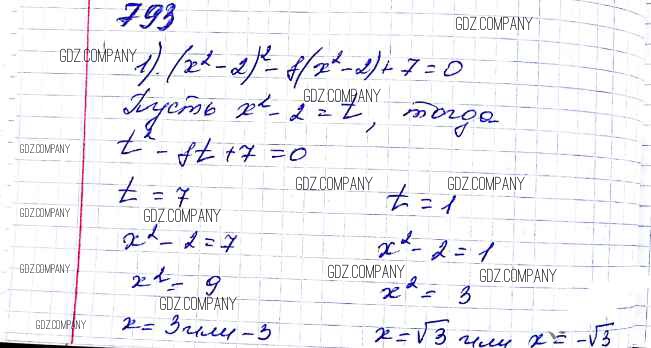 793
GDZ.COMPANY
GDZ.COMPANY
1). (x² - 2)² - 8(x² - 2) + 7 = 0
GDZ.COMPANY
Пусть x² - 2 = t, тогда
GDZ.COMPANY
t² - 8t + 7 = 0
GDZ.COMPANY GDZ.COMPANY
t = 7 t = 1
GDZ.COMPANY GDZ.COMPANY
x² - 2 = 7 x² - 2 = 1
GDZ.COMPANY GDZ.COMPANY GDZ.COMPANY
x² = 9 x² = 3
GDZ.COMPANY
GDZ.COMPANY
x = 3 или -3 x = √3 или x = -√3